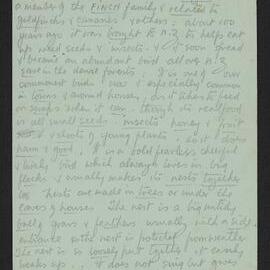 a member of the FINCH family & related to
goldfinches & canaries & others: about 100
years ago it was bought to N.Z to helps eat
out weed seeds & insects. It soon spread
& became an abundant bird all over N.Z
save in the dense forests. It is one of our
commonest birds & especially common
in towns & around houses, for it likes to feed
on scraps when it can, though its real food
is all small seeds - insects honey & fruit
& shoots of young plants - so it does
harm & good. It is a bold fearless cheerful
& lively bird which always lives in big
flocks & usually makes its nests together
too. Nests are made in trees or under the
eaves of houses. The nest is a big untidy
ball of grass & feathers usually with a side
entrance so the nest is protected from weather
The nest is so loosely put together it easily
breaks up... It does not sing but gives